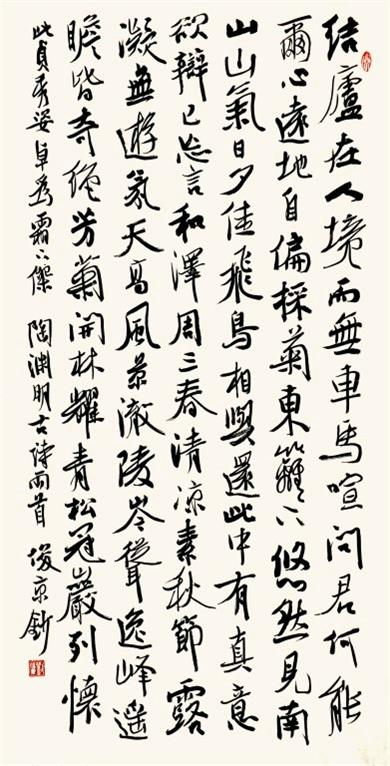 结廬在人境而無車馬喧問君何能
爾心遠地自偏採菊東籬下悠然見南
山山氣日夕佳飛鳥相與還此中有真意
欲辯已忘言和澤周三春清凉素秋節露
凝無遊氛天高風景澈陵岑聳逸峰遥
瞻皆奇絕芳菊開林耀青松冠巖列懷
此貞秀姿卓為霜下傑 陶淵明古詩兩首 俊京鈔